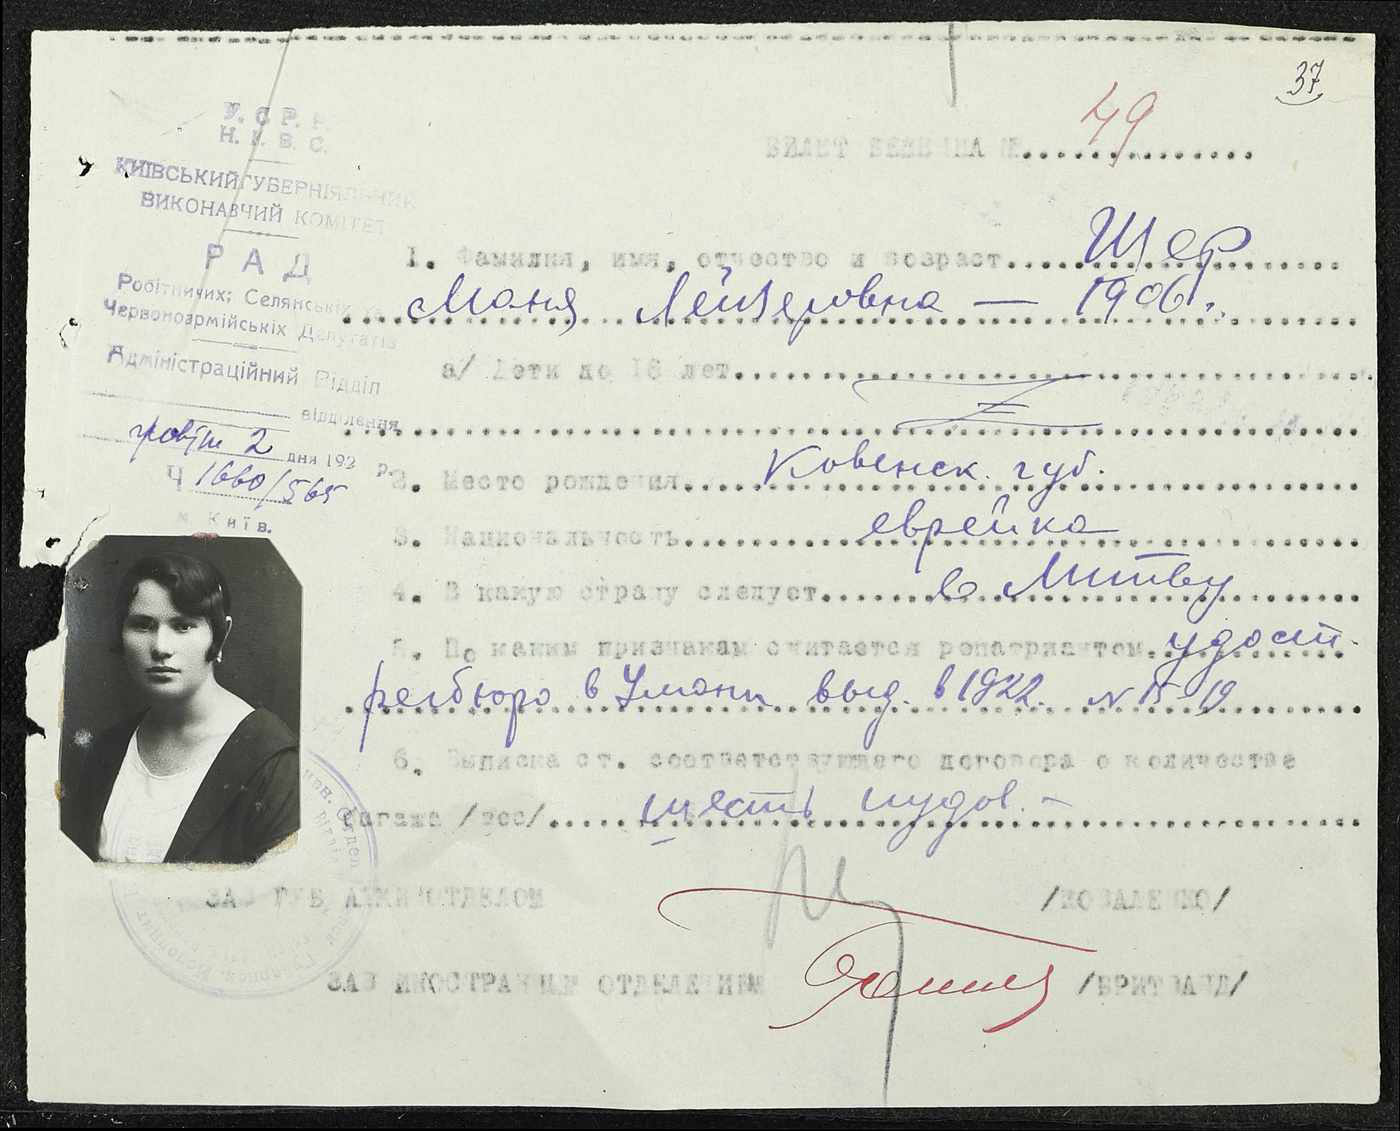 37
У.С.Р.Р.
Н.К.В.С.
КИІВСЬКИЙ ГУБЕРНІЯЛЬНИЙ
ВИКОНАВЧИЙ КОМІТЕТ
РАД
Робітничих; Селянських та
Червоноармійськіх Депутатів
Адміністраційний Відділ
відділення
2 дня 192 р.
Ч 1660/565
м. Київ.
БИЛЕТ БЕЖЕНЦА № 49
1. Фамилия, имя, отчество и возраст Шер
Маня Лейзеровна — 1906 г.
а/ Дети до 16 лет
2. Место рождения Ковенск. губ.
3. Национальность еврейка
4. В какую страну следует в Литву
5. По каким признакам считается репатриантом удост.
регбюро в Умани выд. в 1922. № 1519
6. Выписка ст. соответствующего договора о количестве
багажа /вес/ шесть пудов. —
ЗАВ ГУБ АДМИНОТДЕЛОМ /КОВАЛЕНКО/
ЗАВ ИНОСТРАННЫМ ОТДЕЛЕНИЕМ /БРИТВАНД/